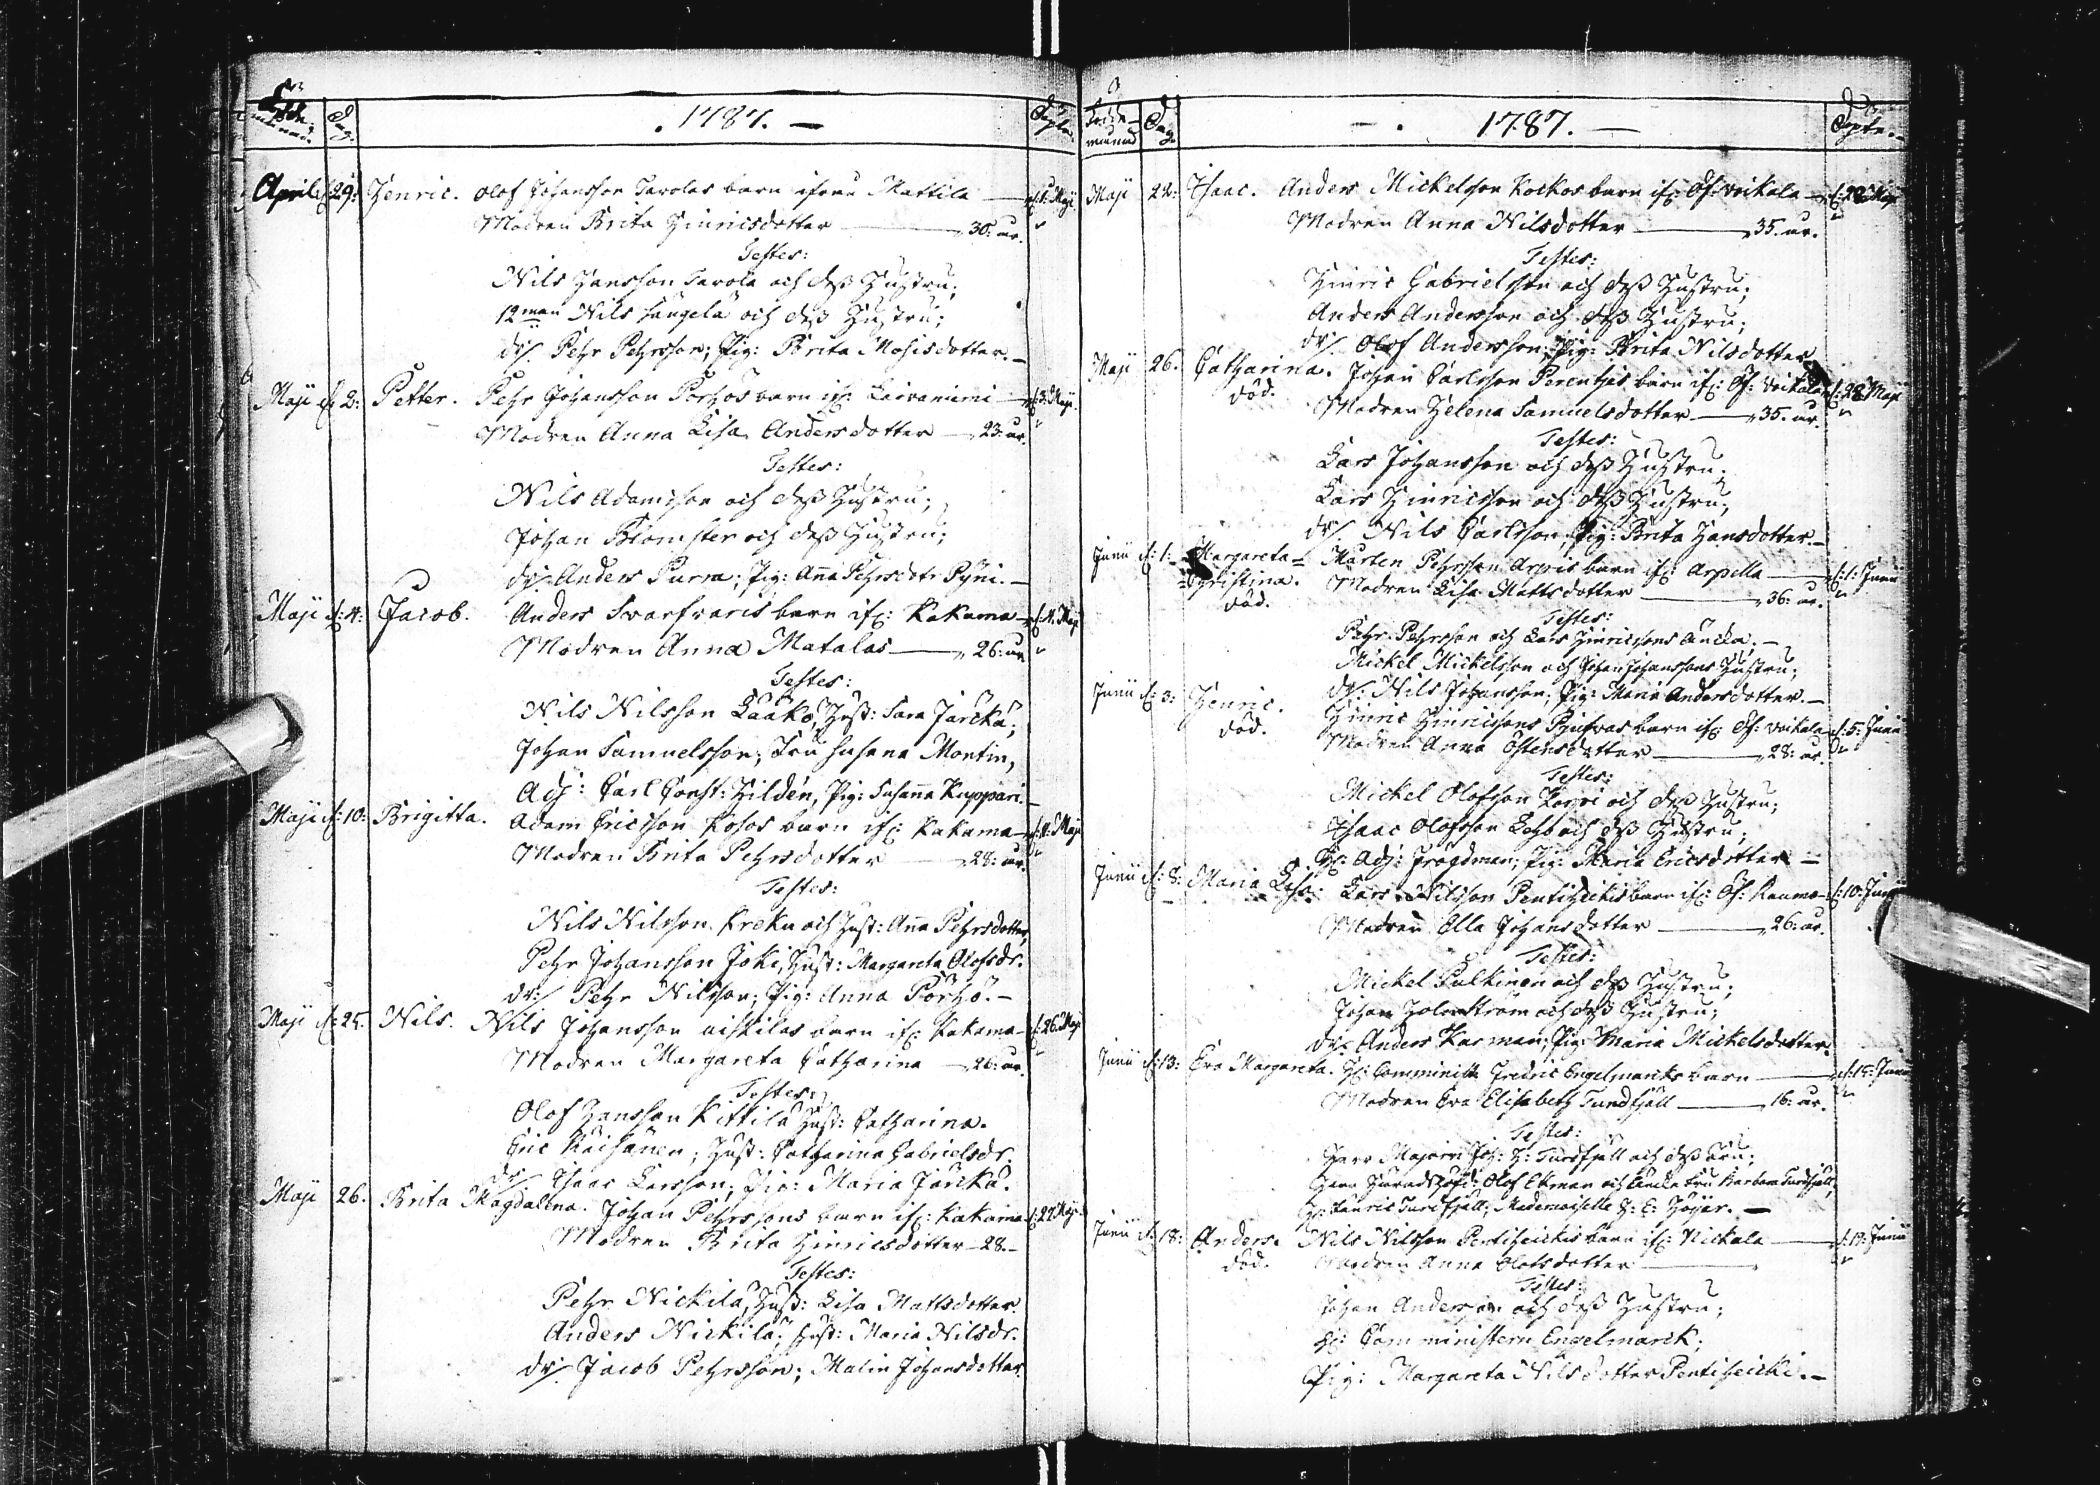 1787.
Dag.
April d. 29. Henric. Olof Johansson Tavolas barn ifrån Mattila d. 1. Maji
Modren Brita Hinricsdotter 30. år.
Testes:
Nils Hansson Tavola och dess Hustru;
12man Nils Längelä och dess Hustru;
dr. Pehr Pehrsson; Pig: Brita Mosisdotter.
Maji d. 2: Petter. Pehr Johansson Porhos barn ifr: Laivaniemi d. 3. Maji.
Modren Anna Lisa Andersdotter 23. år.
Testes:
Nils Adamsson och dess Hustru;
Johan Blomster och dess Hustru;
dr. Anders Purra; Pig: Anna Pehrsdotr Pyni.
Maji d: 4: Jacob. Anders Svarfvaris barn ifr: Kakama d. 4. Maji
Modren Anna Matalas 26: år
Testes:
Nils Nilsson Lååko, Hust: Sara Jarckä;
Johan Samuelsson; Fru Susana Montin,
Adj: Carl Const: Hildén, Pig: Susanna Kuppari.
Maji d: 10: Brigitta. Adam Ericsson Kosos barn ifr: Kakama Maji
Modren Brita Pehrsdotter 28: år.
Testes:
Nils Nilsson Kreku och Hust: Anna Pehrsdotter,
Pehr Johansson Joki, Hust: Margareta Olofsdr.
dr: Pehr Nilsson; Pig: Anna Pörhö.
Maji d: 25. Nils. Nils Johansson barn ifr: Kakama d: 26. Maji
Modren Margareta Catharina 26: år.
Testes:
Olof Hansson Kittilä Hust: Catharina.
Eric Räisänen; Hust: Catharina Gabrielsdr.
dr. Isaac Larsson; Pig: Maria Jarckä.
Maji 26. Brita Magdalena. Johan Pehrssons barn ifr: Kakama d: 27 Maji.
Modren Brita Hinricsdotter 28.
Testes:
Pehr Nickilä, Hust: Lisa Mattsdotter.
Anders Nickilä; Hust: Maria Nilsdr.
dr. Jacob Pehrsson; Malin Johansdotter.
1787.
Dag.
Maji 22: Isaac. Anders Mickelsson Kockos barn ifr: Öf: Voikala d: 28 Maji
Modren Anna Nilsdotter 35. år.
Testes:
Hinric Gabrielsson och dess Hustru;
Anders Andersson och dess Hustru;
dr. Olof Andersson; Pig: Brita Nilsdotter
Maji 26. Catharina. Johan Carlsson barn ifr: Öf: Voikala d: 28 Maji
död. Modren Helena Samuelsdotter 35. år.
Testes:
Lars Johansson och dess Hustru;
Lars Hinricsson och dess Hustru;
dr. Nils Carlsson, Pig: Brita Hansdotter.
Junii d: 1: Margareta- Mårten Pehrsson Arpis barn ifr: Arpella d: 1: Junii
Christina. Modren Lisa Mattsdotter 36: år.
död.
Testes:
Pehr Pehrsson och Lars Hinricssons Äncka;
Mickel Mickelsson och Johan Johanssons Hustru;
dr: Nils Johansson; Pig: Maria Andersdotter.
Junii d: 3: Henric. Hinric Hinricssons barn ifr: Öf: Voikala d: 5: Junii
död. Modren Anna Östensdotter 28: år.
Testes:
Mickel Olofsson Korpi och dess Hustru;
Isaac Olofsson och dess Hustru;
Hr: Adj: Frögdman; Pig: Maria Ericsdotter.
Junii d: 8: Maria Lisa. Lars Nilsson barn ifr: Öf: Raumo d: 10: Junii
Modren Ella Johansdotter 26: år.
Testes:
Mickel Pulkinen och dess Hustru;
Johan Holmström och dess Hustru;
dr. Anders Karman; Pig: Maria Mickelsdotter.
Junii d: 13: Eva Margareta. Hr: Comminist: Fredric Engelmarcks barn d: 15: Junii
Modren Eva Elisabeth Turdfjäll 16: år.
Testes:
Herr Majoren Joh: H: Turdfjäll och dess Fru;
Herr Häradshöfd: Olof Ekman och Fru Barbara Turdfjäll,
Hr: Turdfjäll; Mademoiselle H: E: Höijer.
Junii d: 18: Anders. Nils Nilsson barn ifr: Nickala d: 19: Junii
död. Modren Anna Olofsdotter
Testes:
Johan Andersson och dess Hustru;
Hr: Comministern Engelmarck;
Pig: Margareta Nilsdotter